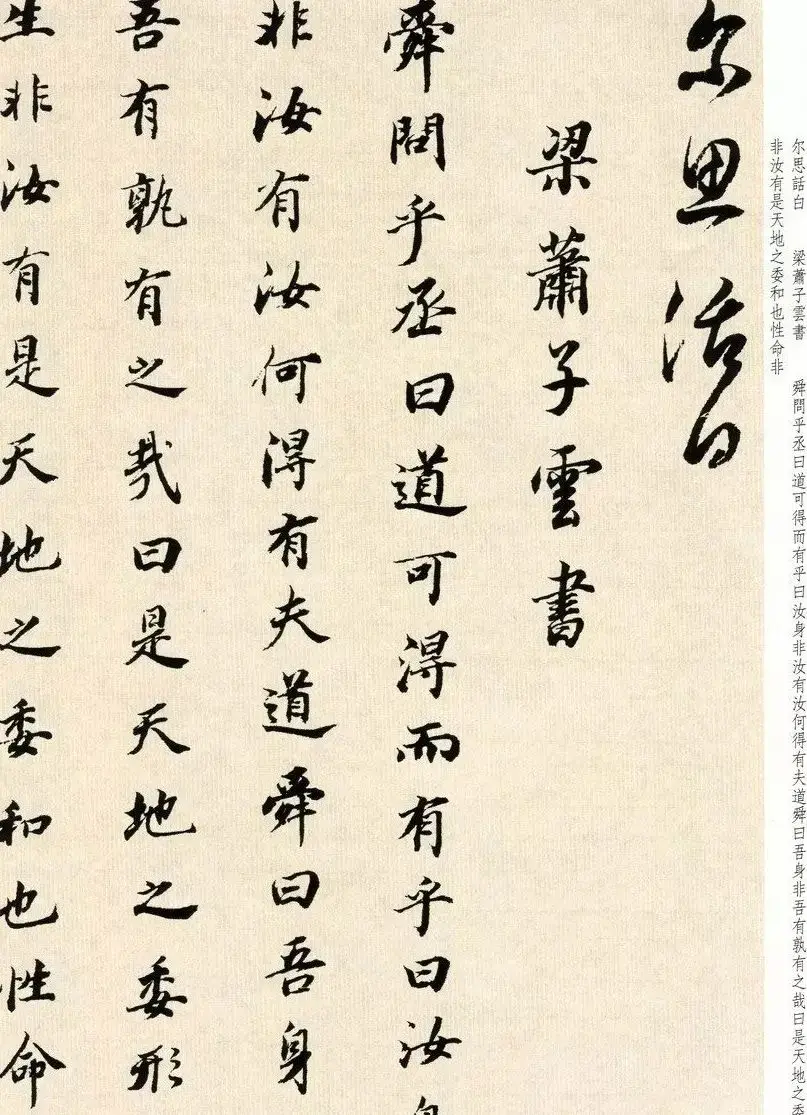 尔思話白
梁蕭子雲書
舜問乎丞曰道可得而有乎曰汝身
非汝有汝何得有夫道舜曰吾身
吾有孰有之哉曰是天地之委形
生非汝有是天地之委和也性命
尔思話白 梁蕭子雲書 舜問乎丞曰道可得而有乎曰汝身非汝有汝何得有夫道舜曰吾身非吾有孰有之哉曰是天地之委
非汝有是天地之委和也性命非